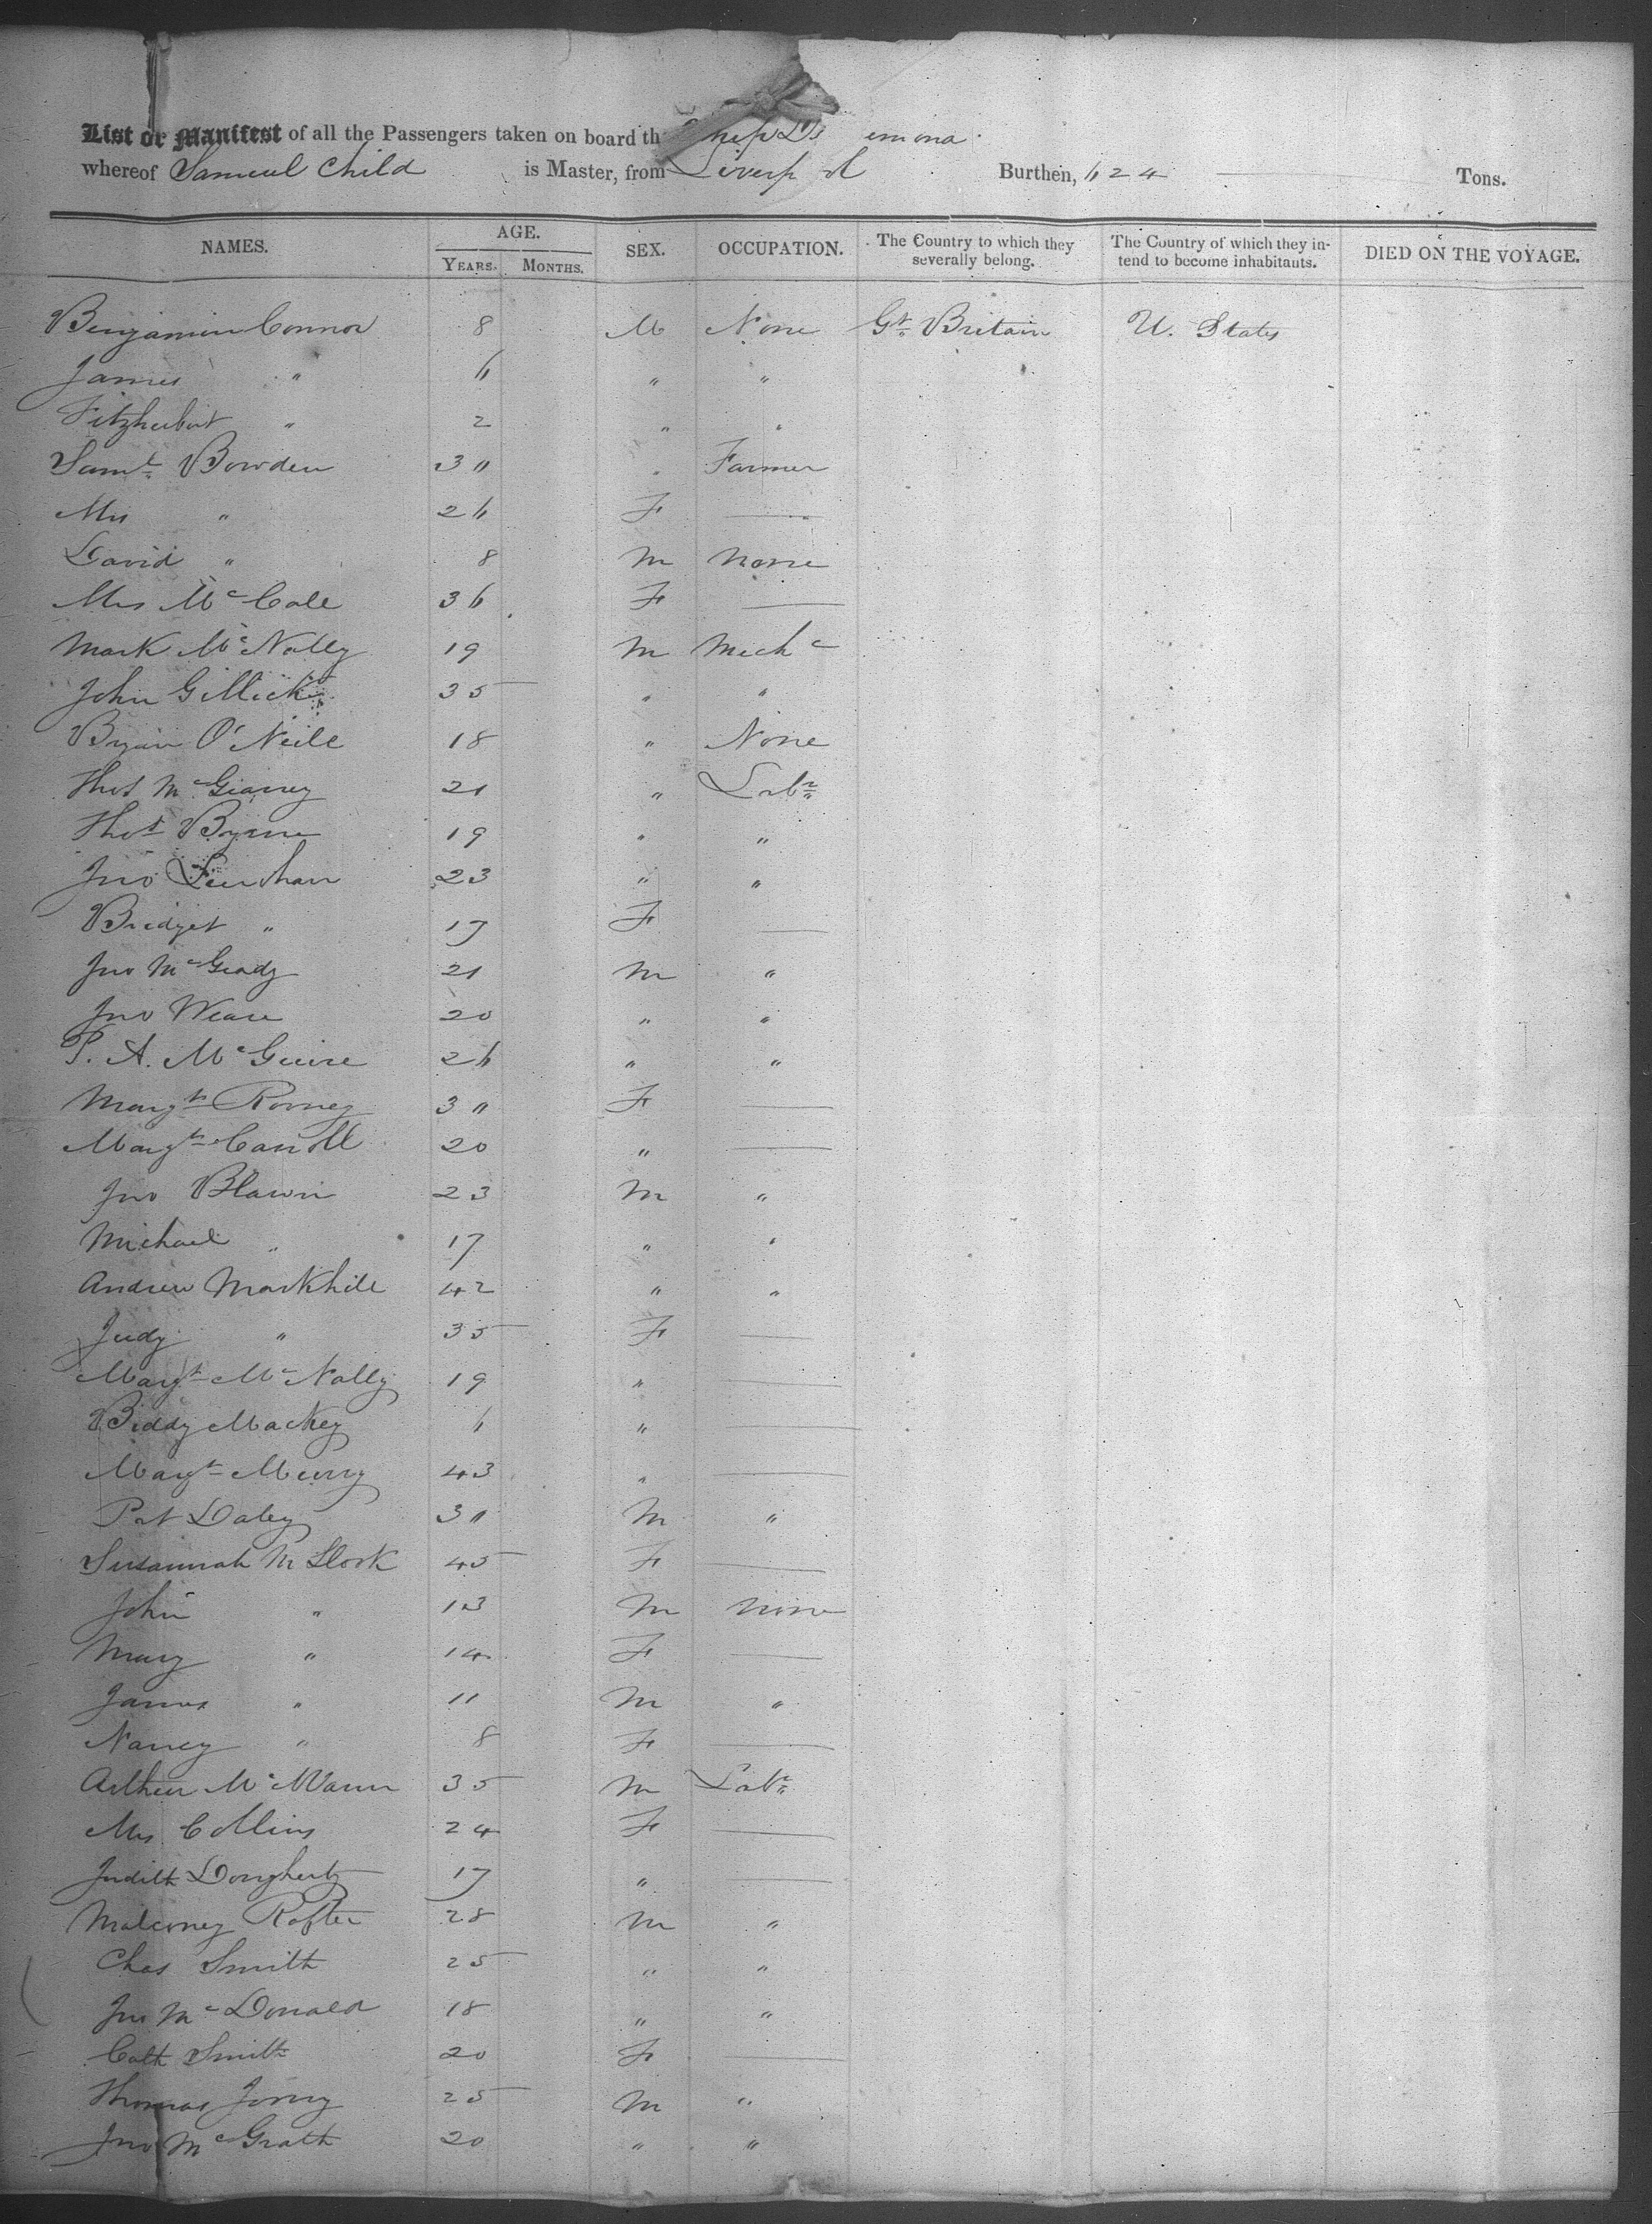 List or Manifest of all the Passengers taken on board th Ship Ds emona
whereof Samuel Child is Master, from Liverp ol Burthen, 624 Tons.
NAMES. AGE. YEARS. MONTHS. SEX. OCCUPATION. The Country to which they severally belong. The Country of which they intend to become inhabitants. DIED ON THE VOYAGE.
Benjamin Connor 8 M None Gt. Britain U. States
James " 6 " "
Fitzherbert " 2 " "
Saml. Bowden 30 " Farmer
Mrs " 26 F —
David " 8 M None
Mrs McCall 36 F —
Mark McNally 19 M Mechc
John Gillick 35 " "
Bryan O'Neill 18 " None
Thos 21 " Labr
Thos Byrne 19 " "
Jno Lenehan 23 " "
Bridget " 17 F —
Jno McGrady 21 M "
Jno Weare 20 " "
P. A. McGuire 26 " "
Margt Rooney 30 F —
Margt Carroll 20 " —
Jno 23 M "
Michael " 17 " "
Andrew Markhill 42 " "
Judy " 35 F —
Margt McNally 19 " —
Biddy Mackey 6 " —
Margt Murry 43 " —
Pat Daley 30 M "
Susannah 45 F —
John " 13 M None
Mary " 14 F —
James " 11 M "
Nancy " 8 F —
Arthur McMann 35 M Labr
Mrs Collins 24 F —
Judith Dougherty 17 " —
Rafter 28 M "
Chas Smith 25 " "
Jno McDonald 18 " "
Cath Smith 20 F —
Thomas 25 M "
Jno McGrath 20 " "